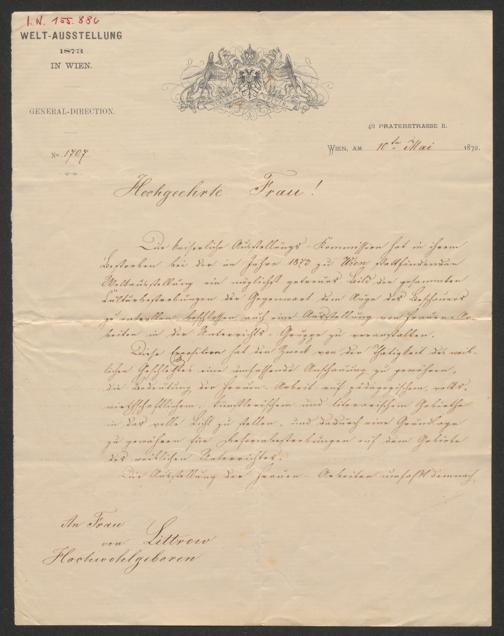 I. N. 155.886
WELT-AUSSTELLUNG
1873
IN WIEN.
GENERAL-DIRECTION.
42 PRATERSTRASSE II.
No. 1707
WIEN, AM 10ten Mai 1872.
Hochgeehrte Frau!
Die kaiserliche Ausstellungs-Kommission hat in ihrem
Bestreben bei der im Jahre 1873 zu Wien stattfindenden
Weltausstellung ein möglichst getreues Bild der gesammten
Culturbestrebungen der Gegenwart dem Auge des Beschauers
zu beschlossen auch eine Ausstellung von Frauen-Ar-
beiten in der Unterrichts-Gruppe zu veranstalten.
Diese Exposition hat den Zweck von der Thätigkeit des weib-
lichen Geschlechtes eine umfassende Anschauung zu gewähren,
die Bedeutung der Frauen-Arbeit auf pädagogischem, volks-
wirthschaftlichem, künstlerischem und literarischem Gebiethe
in das volle Licht zu stellen, und dadurch eine Grundlage
zu gewähren für Reformbestrebungen auf dem Gebiete
des weiblichen Unterrichtes.
Die Ausstellung der Frauen-Arbeiten umfaßt demnach
An Frau
von Littrow
Hochwohlgeboren